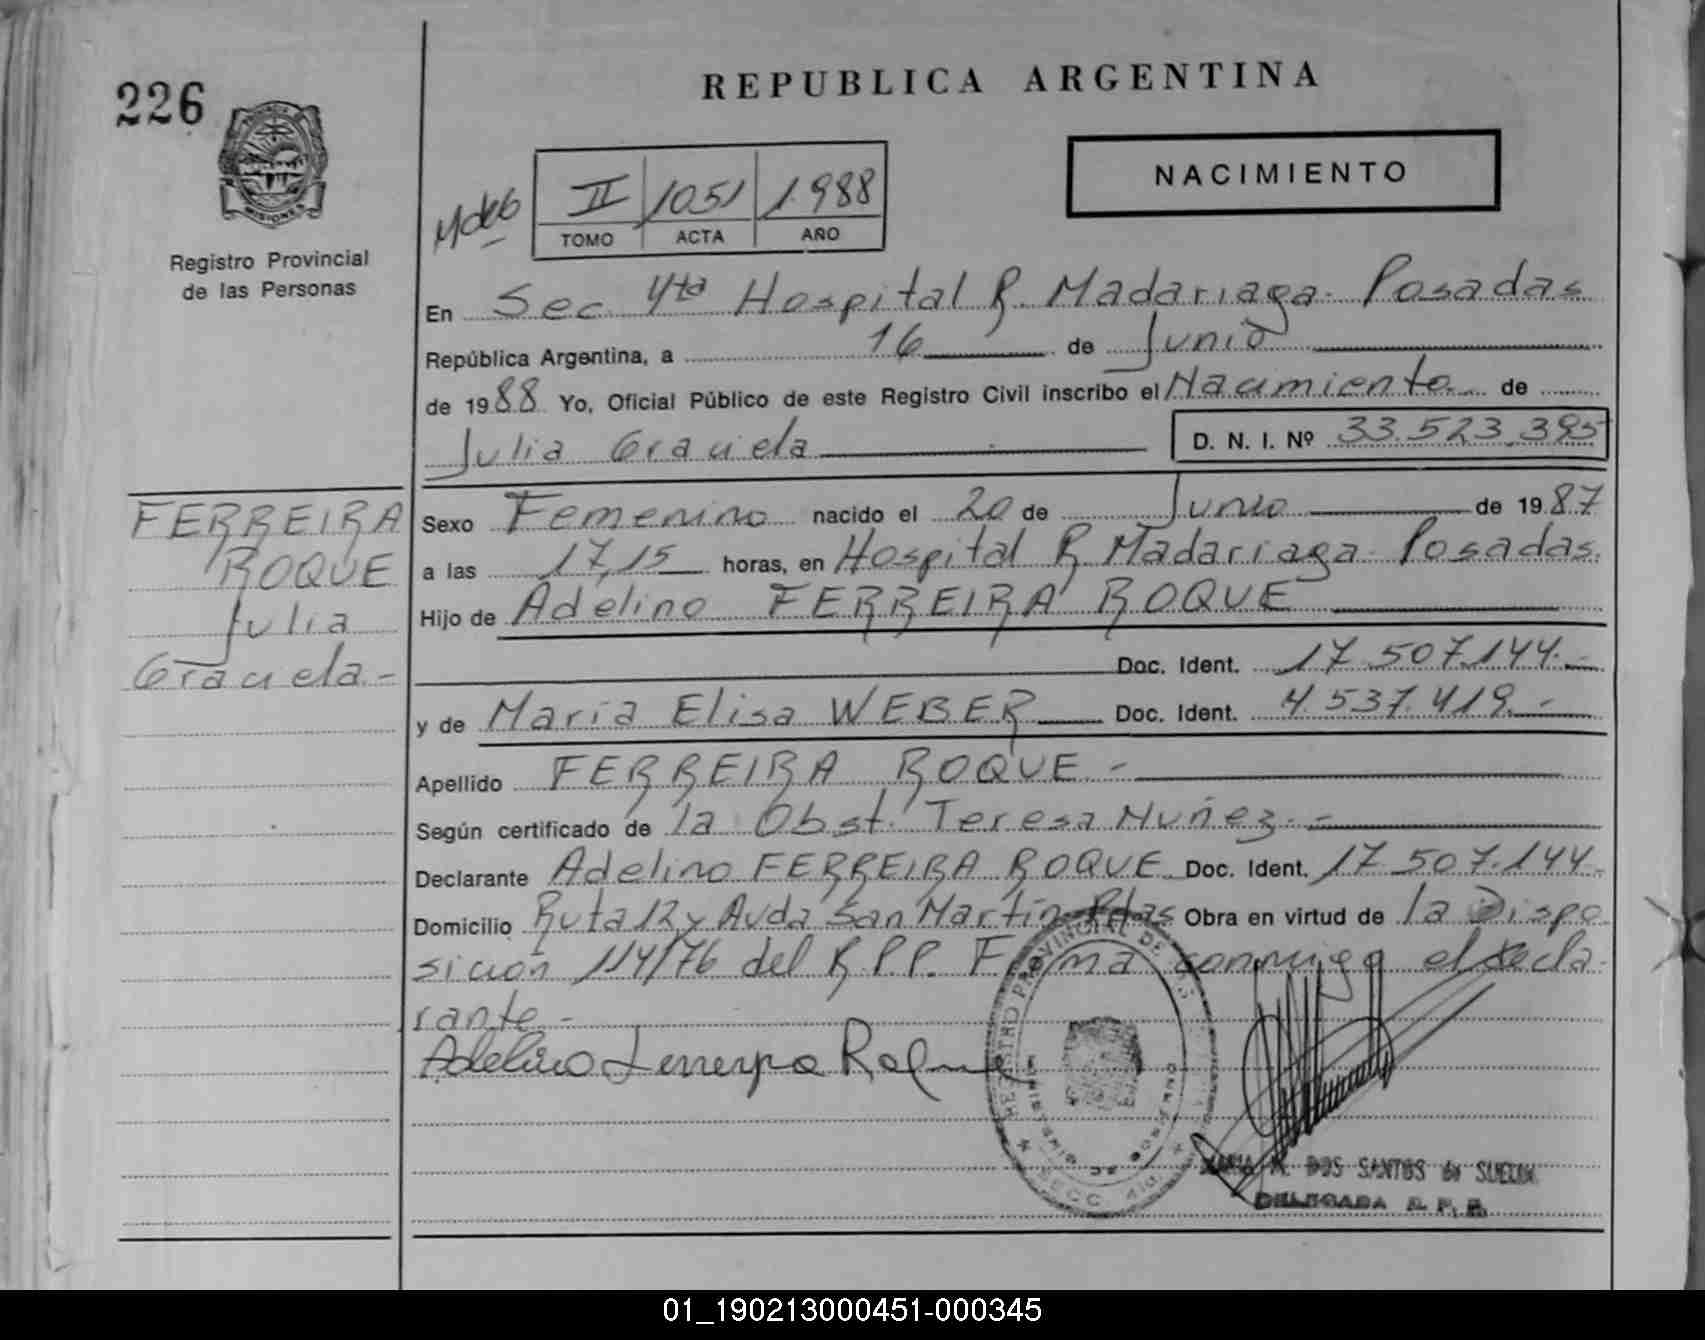 226
REPUBLICA ARGENTINA
PROVINCIA
MISIONES
Registro Provincial
de las Personas
II 1051 1.988
TOMO ACTA AÑO
NACIMIENTO
En Sec. 4ta Hospital R. Madariaga. Posadas
República Argentina, a 16 de Junio
de 1988 Yo, Oficial Público de este Registro Civil inscribo el Nacimiento de
Julia Graciela D. N. I. Nº 33.523.395
FERREIRA
ROQUE
Julia
Graciela.-
Sexo Femenino nacido el 20 de Junio de 1987
a las 17,15 horas, en Hospital R Madariaga. Posadas.
Hijo de Adelino FERREIRA ROQUE
Doc. Ident. 17.507.144.-
y de Maria Elisa WEBER Doc. Ident. 4.537.419.-
Apellido FERREIRA ROQUE.-
Según certificado de la Obst. Teresa Nuñez.-
Declarante Adelino FERREIRA ROQUE Doc. Ident. 17.507.144.
Domicilio Ruta 12 y Avda San Martín Pdas Obra en virtud de la Dispo
sición 114/76 del R.P.P. Firma conmigo el decla-
rante.-
Adelino Ferreyra Roque
REGISTRO PROVINCIAL DE LAS
MINISTERIO DE GOBIERNO
SECC. 4ta
MARIA M. DOS SANTOS de
DELEGADA R. P. P.
01_190213000451-000345